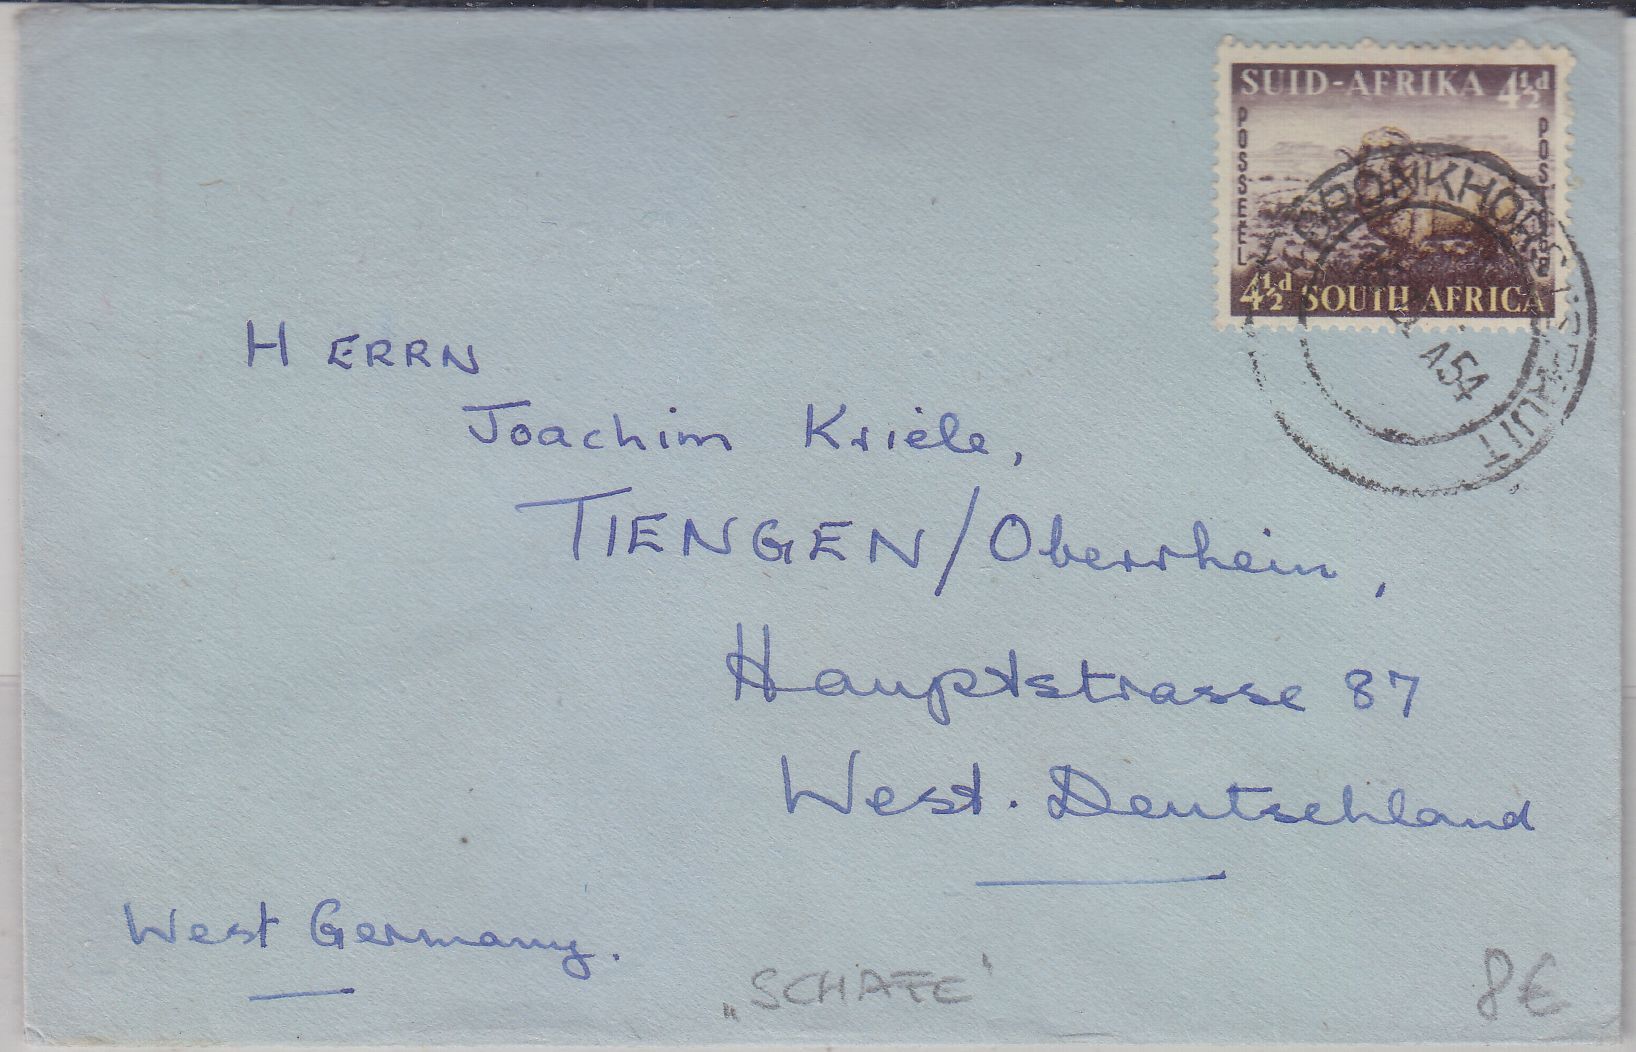 SUID-AFRIKA 4½d
POSSEEL
4½d SOUTH AFRICA
BRONKHORSTSPRUIT
A54
HERRN
Joachim Kriele,
TIENGEN/Oberrhein,
Hauptstrasse 87
West. Deutschland
West Germany.
„SCHAFE“
8€